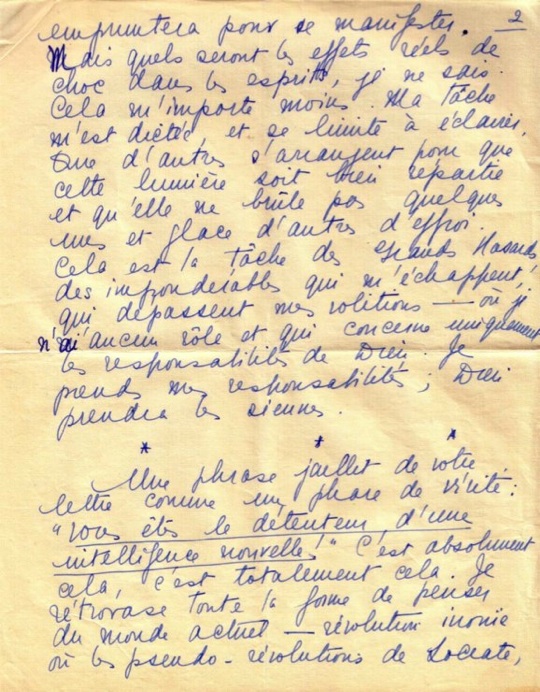 empruntera pour se manifester. 2
Mais quels seront les effets réels de
choc dans les esprits, je ne sais.
Cela m'importe moins. Ma tâche
m'est dictée et se limite à éclairer.
Que d'autres s'arrangent pour que
cette lumière soit bien répartie
et qu'elle ne brûle pas quelques
uns et glace d'autres d'effroi.
Cela est la tâche des Grands Hasards
des impondérables qui m'échappent !
qui dépassent mes volitions — où je
n'ai aucun rôle et qui concerne uniquement
les responsabilités de Dieu. Je
prends mes responsabilités ; Dieu
prendra les siennes.
* * *
Une phrase jaillit de votre
lettre comme un phare de vérité :
"vous êtes le détenteur d'une
intelligence nouvelle !" C'est absolument
cela, c'est totalement cela. Je
toute la forme de penser
du monde actuel — révolution inouïe
où les pseudo-révolutions de Socrate,